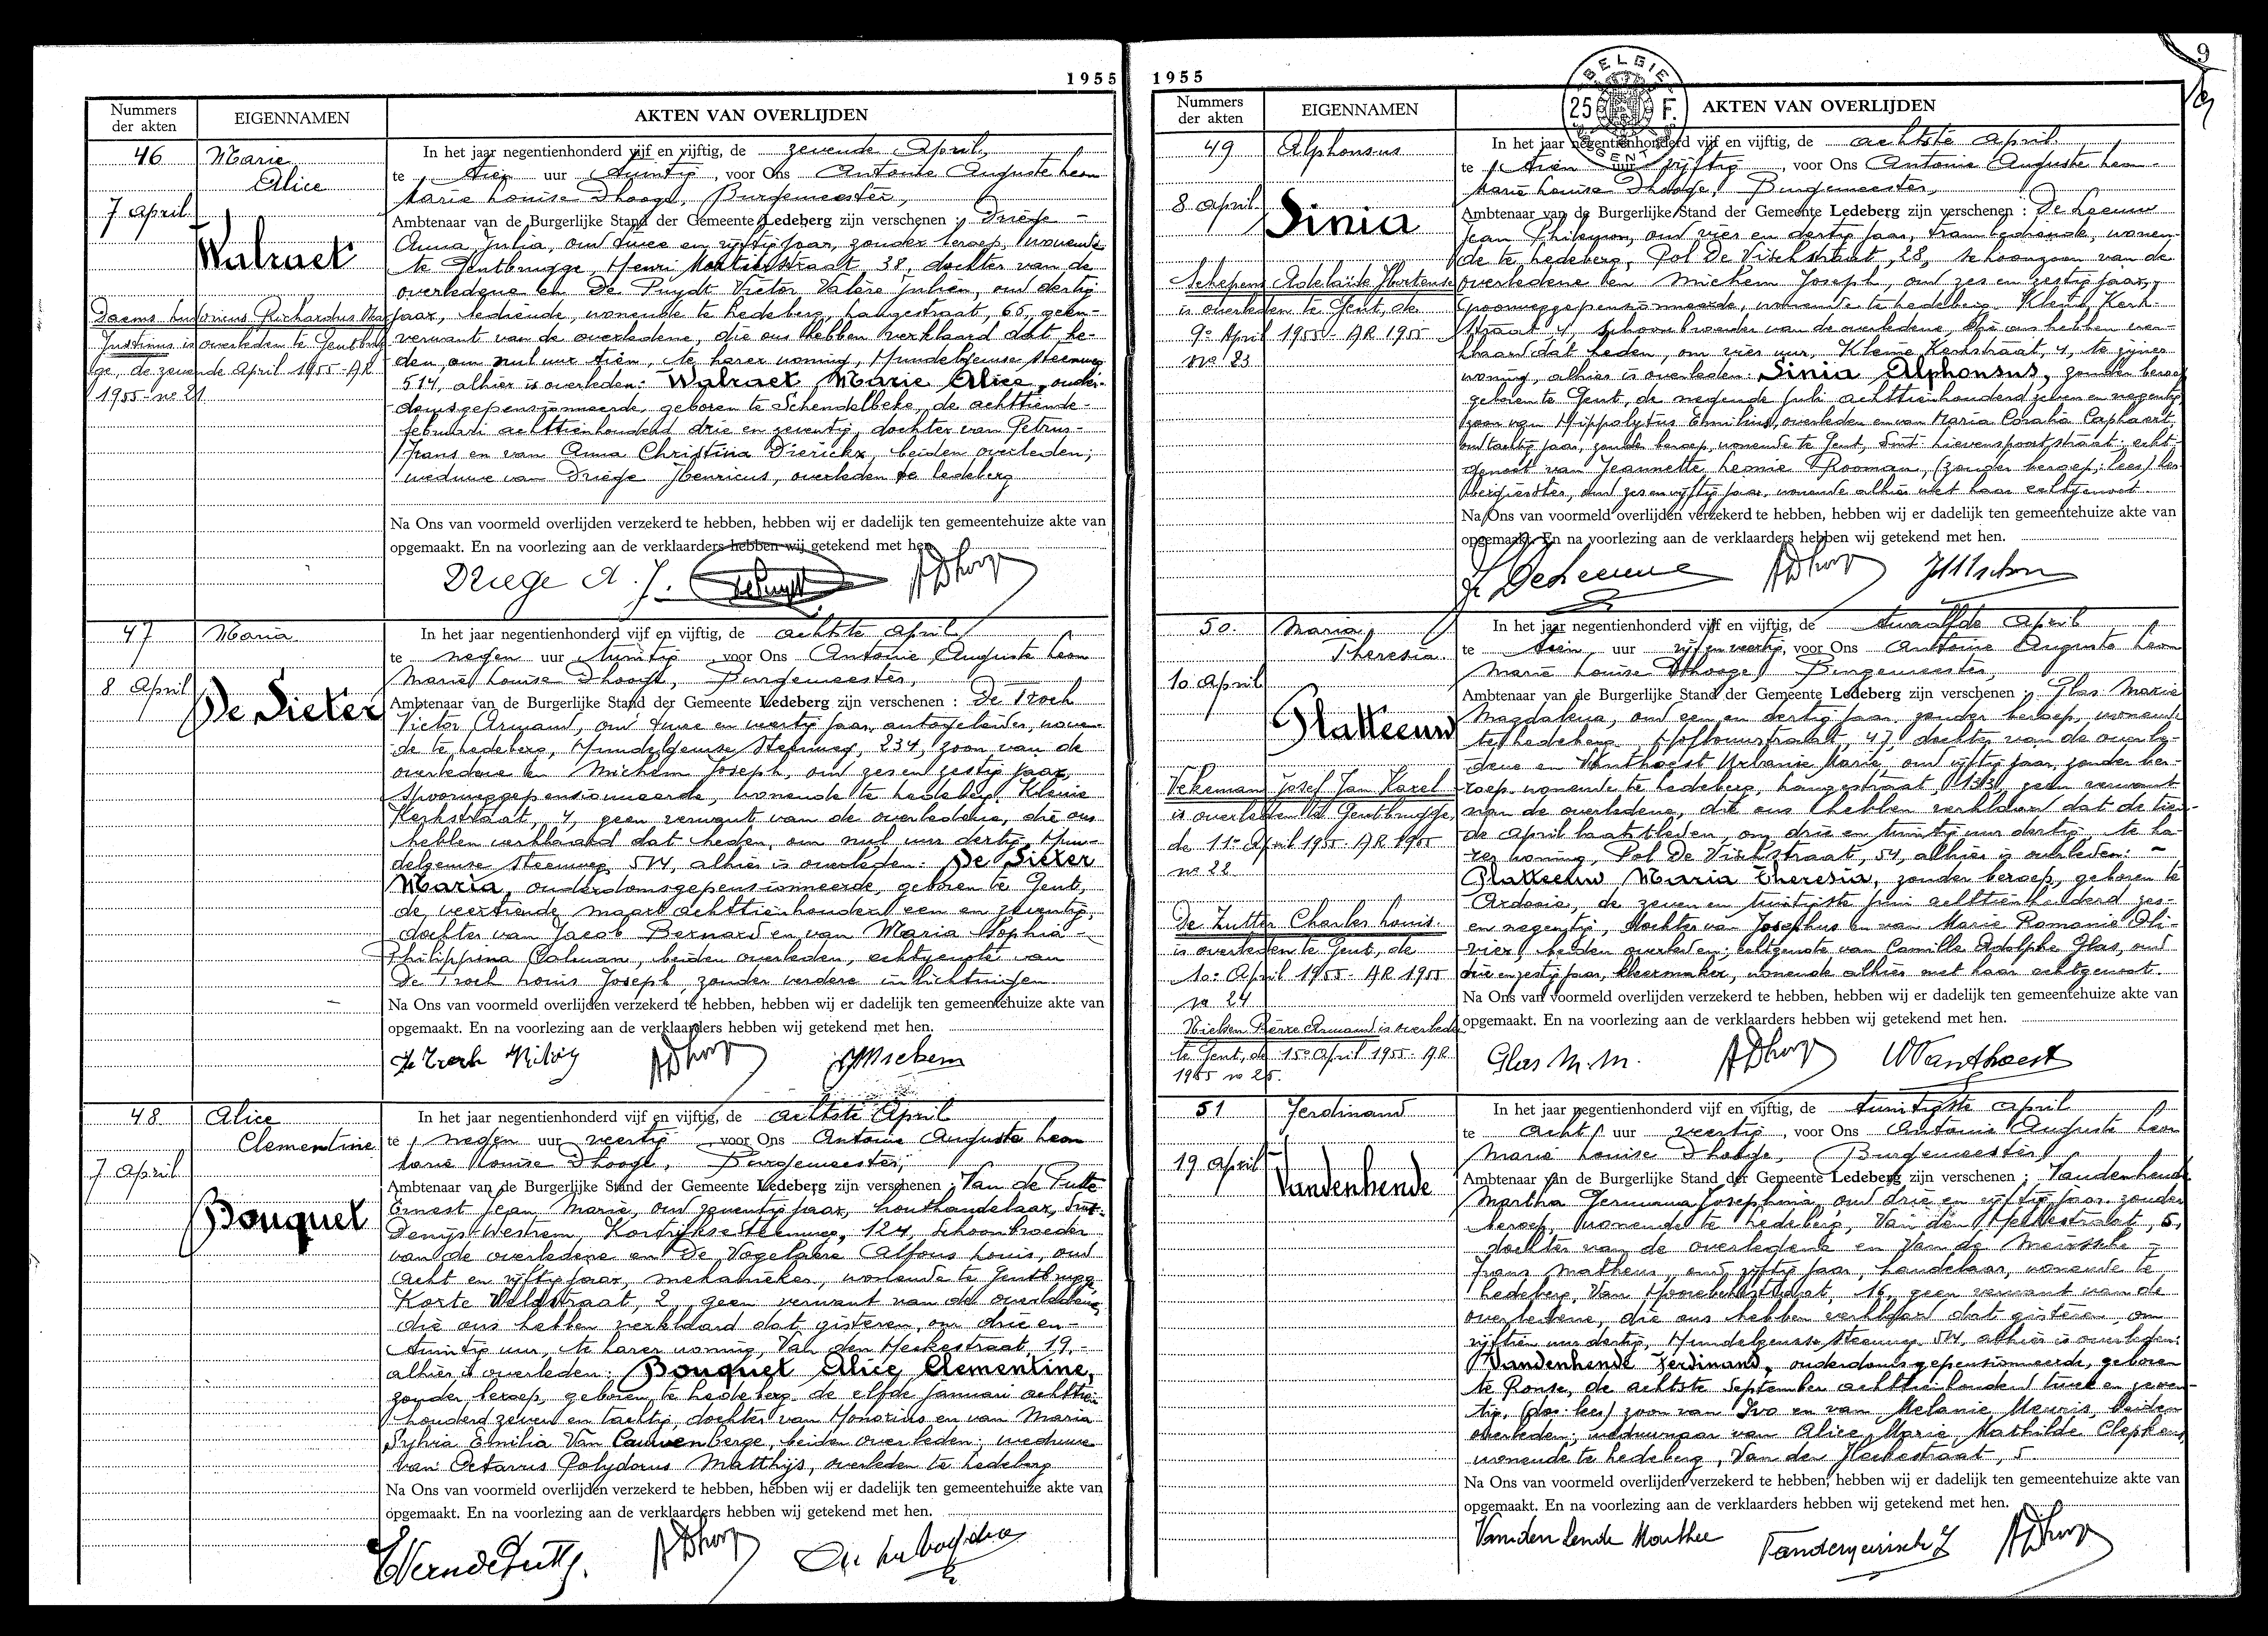 1955
Nummers der akten
EIGENNAMEN
AKTEN VAN OVERLIJDEN
46
Marie
Alice
7 April
Walraet
Daems Ludovicus Richardus
Justinus is overleden te Gentbrug-
ge, de zevende April 1955 - AR
1955 - no 21
In het jaar negentienhonderd vijf en vijftig, de zevende April,
te tien uur twintig, voor Ons Antoine Auguste Leon
Marie Louise Dhooge, Burgemeester,
Ambtenaar van de Burgerlijke Stand der Gemeente Ledeberg zijn verschenen : Driege -
Anna Julia, oud twee en vijftig jaar, zonder beroep, wonende
te Gentbrugge, Henri straat 38, dochter van de
overledene en De Puydt Victor Valère Julien, oud dertig
jaar, bediende, wonende te Ledeberg, Langestraat, 65, geen
verwant van de overledene, die ons hebben verklaard dat he-
den, om nul uur tien, te harer woning, Hundelgemse steenweg
514, alhier is overleden: Walraet Marie Alice, ouder-
domsgepensionneerde, geboren te Schendelbeke, de achttiende
februari achttienhonderd drie en zeventig, dochter van Petrus-
Frans en van Anna Christina Dierickx, beiden overleden;
weduwe van Driege Henricus, overleden te Ledeberg
Na Ons van voormeld overlijden verzekerd te hebben, hebben wij er dadelijk ten gemeentehuize akte van
opgemaakt. En na voorlezing aan de verklaarders hebben wij getekend met hen.
Driege A. J. DePuydt ADhooge
47
Maria
8 April
De Sieter
In het jaar negentienhonderd vijf en vijftig, de achtste April
te negen uur twintig, voor Ons Antoine Auguste Leon
Marie Louise Dhooge, Burgemeester,
Ambtenaar van de Burgerlijke Stand der Gemeente Ledeberg zijn verschenen : De Troch
Victor Armand, oud twee en veertig jaar, autogeleider, wonen-
de te Ledeberg, Hundelgemse Steenweg, 234, zoon van de
overledene en Michem Joseph, oud zes en zestig jaar,
Spoorweggepensionneerde, wonende te Ledeberg, Kleine
Kerkstraat, 4, geen verwant van de overledene, die ons
hebben verklaard dat heden, om nul uur dertig, Hun-
delgemse steenweg 514, alhier is overleden: De Sieter
Maria, ouderdomsgepensionneerde, geboren te Gent,
de veertiende maart achttienhonderd een en zeventig,
dochter van Jacob Bernard en van Maria Sophia
Philippina Colman, beiden overleden, echtgenote van
De Troch Louis Joseph, zonder verdere inlichtingen
Na Ons van voormeld overlijden verzekerd te hebben, hebben wij er dadelijk ten gemeentehuize akte van
opgemaakt. En na voorlezing aan de verklaarders hebben wij getekend met hen.
De Troch ADhooge JMichem
48
Alice
Clementine
7 April
Bouquet
In het jaar negentienhonderd vijf en vijftig, de achtste April
te negen uur veertig, voor Ons Antoine Auguste Leon
Marie Louise Dhooge, Burgemeester,
Ambtenaar van de Burgerlijke Stand der Gemeente Ledeberg zijn verschenen : Van de Putte
Ernest Jean Marie, oud zeventig jaar, houthandelaar, Sint-
Denijs Westrem, Kortrijkse Steenweg, 124, Schoonbroeder
van de overledene en De Vogelaere Alfons Louis, oud
acht en vijftig jaar, mekanieker, wonende te Gentbrugge
Korte Veldstraat, 2, geen verwant van de overledene,
die ons hebben verklaard dat gisteren, om drie en-
twintig uur, te harer woning, Van den Heckestraat, 19,-
alhier is overleden: Bouquet Alice Clementine,
zonder beroep, geboren te Ledeberg de elfde januari achttien-
honderd zeven en tachtig, dochter van Honorius en van Maria
Sylvia Emilia Van Cauwenberge, beiden overleden; weduwe
van Octavus Polydorus Matthijs, overleden te Ledeberg
Na Ons van voormeld overlijden verzekerd te hebben, hebben wij er dadelijk ten gemeentehuize akte van
opgemaakt. En na voorlezing aan de verklaarders hebben wij getekend met hen.
ADhooge
1955
9
BELGIE
25 F.
GENT
Nummers der akten
EIGENNAMEN
AKTEN VAN OVERLIJDEN
49
Alphonsus
8 April
Sinia
Schepens Adelaïde Hortense
is overleden te Gent, de
9e April 1955 - AR 1955
no 23
In het jaar negentienhonderd vijf en vijftig, de achtste April
te tien uur vijftig, voor Ons Antoine Auguste Leon
Marie Louise Dhooge, Burgemeester,
Ambtenaar van de Burgerlijke Stand der Gemeente Ledeberg zijn verschenen : De Leeuw
Jean Philemon, oud vier en dertig jaar, trambediende, wonen-
de te Ledeberg, Pol De Vischstraat, 28, schoonzoon van de
overledene en Michem Joseph, oud zes en zestig jaar,
spoorweggepensionneerde, wonende te Ledeberg Kleine Kerk-
straat 4, schoonbroeder van de overledene, die ons hebben ver-
klaard dat heden, om vier uur, Kleine Kerkstraat, 4, te zijner
woning, alhier is overleden: Sinia Alphonsus, zonder beroep
geboren te Gent, de negende juli achttienhonderd zeven en negentig,
zoon van Hippolytus Emilius, overleden en van Maria Coralia Caphaert,
oud tachtig jaar, zonder beroep, wonende te Gent, Sint Lievenspoortstraat; echt-
genoot van Jeannette Leonie Rooman, (zonder beroep; lees) her-
bergierster, oud zes en vijftig jaar, wonende alhier met haar echtgenoot.
Na Ons van voormeld overlijden verzekerd te hebben, hebben wij er dadelijk ten gemeentehuize akte van
opgemaakt. En na voorlezing aan de verklaarders hebben wij getekend met hen.
J. DeLeeuw ADhooge JMichem
50.
Maria
Theresia.
10 April
Platteeuw
Vekeman Josef Jan Karel
is overleden te Gentbrugge,
de 11e April 1955 AR 1955
no 22
De Zutter Charles Louis.
is overleden te Gent, de
10e April 1955 - AR 1955
no 24
Pierre Armand is overleden
te Gent, de 15e April 1955 - AR
1955 no 25.
In het jaar negentienhonderd vijf en vijftig, de twaalfde April
te tien uur vijf en veertig, voor Ons Antoine Auguste Leon
Marie Louise Dhooge, Burgemeester,
Ambtenaar van de Burgerlijke Stand der Gemeente Ledeberg zijn verschenen : Glas Marie
Magdalena, oud een en dertig jaar, zonder beroep, wonende
te Ledeberg, 47, dochter van de overle-
dene en Vanthoest Urbanie Marie, oud vijftig jaar, zonder be-
roep, wonende te Ledeberg, Langestraat, 133, geen verwant
van de overledene, die ons hebben verklaard dat de tien-
de April laatstleden, om drie en twintig uur dertig, te ha-
rer woning, Pol De Vischstraat, 54, alhier is overleden: -
Platteeuw Maria Theresia, zonder beroep, geboren te
Ardooie, de zeven en twintigste juni achttienhonderd zes-
en negentig, dochter van Josephus en van Marie Romanie Oli-
vier, beiden overleden; echtgenote van Camille Adolphe Glas, oud
drie en zestig jaar, kleermaker, wonende alhier met haar echtgenoot.
Na Ons van voormeld overlijden verzekerd te hebben, hebben wij er dadelijk ten gemeentehuize akte van
opgemaakt. En na voorlezing aan de verklaarders hebben wij getekend met hen.
Glas M. M. ADhooge UVanthoest
51
Ferdinand
19 April
Vandenhende
In het jaar negentienhonderd vijf en vijftig, de twintigste April
te acht uur veertig, voor Ons Antoine Auguste Leon
Marie Louise Dhooge, Burgemeester,
Ambtenaar van de Burgerlijke Stand der Gemeente Ledeberg zijn verschenen : Vandenhende
Martha Germana Josephina, oud drie en vijftig jaar, zonder
beroep, wonende te Ledeberg, Van den Heckestraat, 5,
dochter van de overledene en Van de Meirssche -
Frans Matheus, oud vijftig jaar, handelaar, wonende te
Ledeberg, Van Hoorebekestraat, 16, geen verwant van de
overledene, die ons hebben verklaard dat gisteren, om
vijftien uur dertig, Hundelgemse steenweg 514, alhier is overleden:
Vandenhende Ferdinand, ouderdomsgepensionneerde, geboren
te Ronse, de achtste September achttienhonderd twee en zeven-
tig, (doc: lees) zoon van Ivo en van Melanie Meuris, beiden
overleden; weduwnaar van Alice Marie Mathilde Clepkens,
wonende te Ledeberg, Van den Heckestraat, 5.
Na Ons van voormeld overlijden verzekerd te hebben, hebben wij er dadelijk ten gemeentehuize akte van
opgemaakt. En na voorlezing aan de verklaarders hebben wij getekend met hen.
Vanden hende Marthe Vandemeirssche F ADhooge